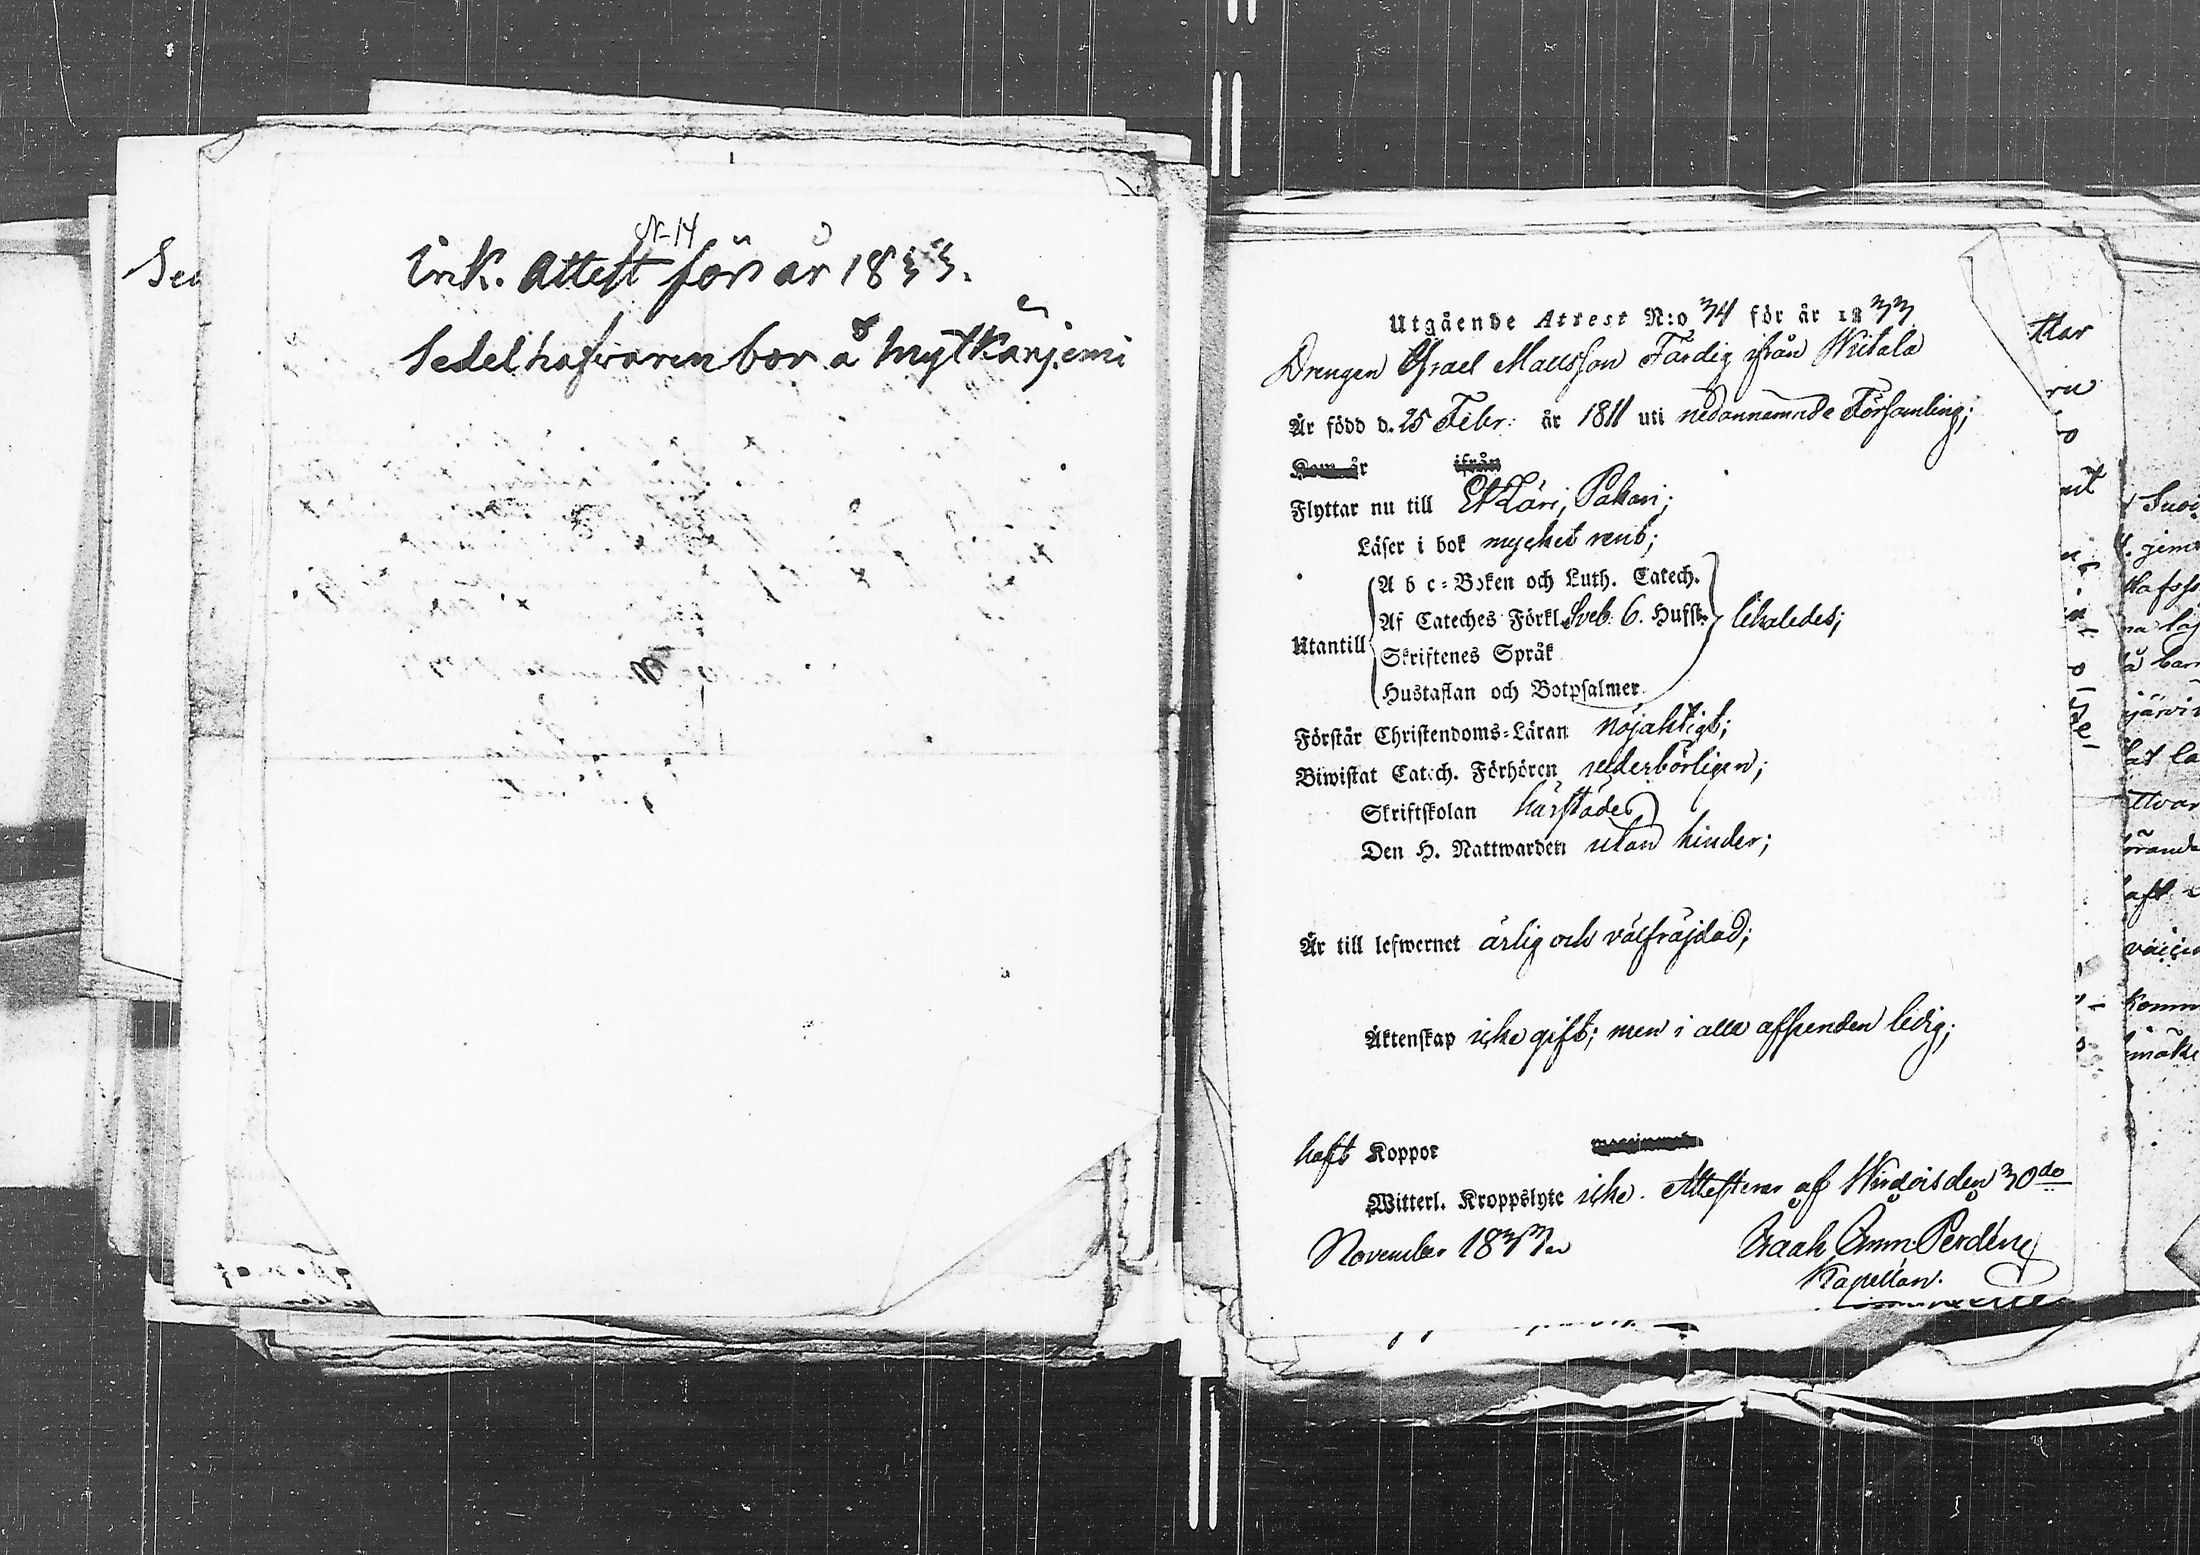 N. 14
Ink. Attest för år 1833.
Sedelhafvaren bor å Mylkänjemi
Utgående Attest N:o 34 för år 1833
Drengen Israel Matsson Färdig från Wiitala
Är född d. 25 Febr. år 1811 uti nedannemnde Församling;
Kom år ifrån
Flyttar nu till Etzäri, Pakari;
Läser i bok mycket rent;
A b c-Boken och Luth. Catech.
Af Cateches Förkl. Sveb. 6. Hufst. likaledes;
Utantill
Skriftenes Språk
Hustaflan och Botpsalmer
Förstår Christendoms-Läran nöjaktigt;
Biwistat Catech. Förhören vederbörligen;
Skriftskolan härstädes
Den H. Nattwarden utan hinder;
Är till lefwernet ärlig och välfräjdad;
Äktenskap icke gift; men i alla afseenden ledig;
haft Koppor
Witterl. Kroppslyte icke. Attesteras af Wirdois den 30de
November 1833
Isaak Emm. Perdén
Kapellan.